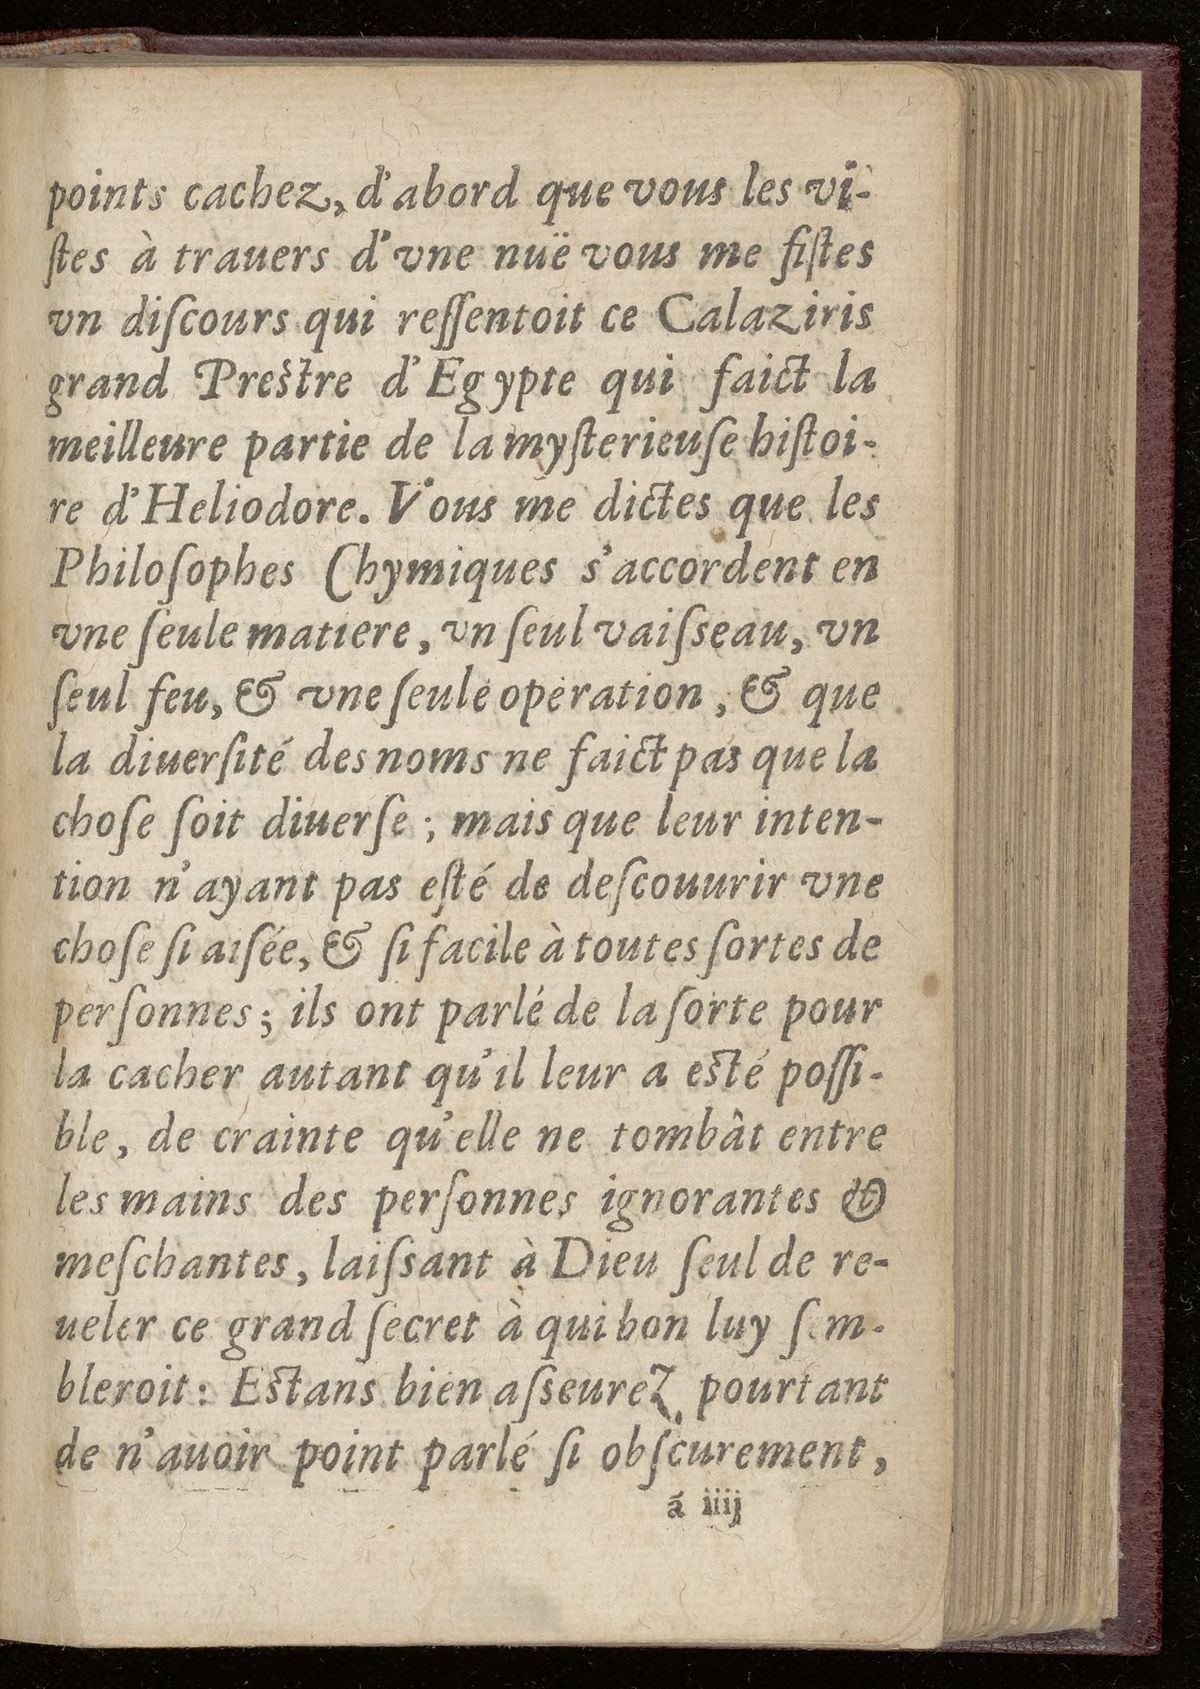 points cachez, d'abord que vous les vi-
ſtes à trauers d'vne nuë vous me fiſtes
vn diſcours qui reſſentoit ce Calaziris
grand Preſtre d'Egypte qui faict la
meilleure partie de la myſterieuſe hiſtoi-
re d'Heliodore. Vous me dictes que les
Philoſophes Chymiques s'accordent en
vne ſeule matiere, vn ſeul vaiſseau, vn
ſeul feu, & vne ſeule operation, & que
la diuerſité des noms ne faict pas que la
choſe ſoit diuerſe ; mais que leur inten-
tion n'ayant pas eſté de deſcouurir vne
choſe ſi aiſée, & ſi facile à toutes ſortes de
perſonnes ; ils ont parlé de la ſorte pour
la cacher autant qu'il leur a eſté poſſi-
ble, de crainte qu'elle ne tombât entre
les mains des perſonnes ignorantes &
meſchantes, laiſsant à Dieu ſeul de re-
ueler ce grand ſecret à qui bon luy ſem-
bleroit : Eſtans bien aſseurez pourtant
de n'auoir point parlé ſi obſcurement,
á iiij